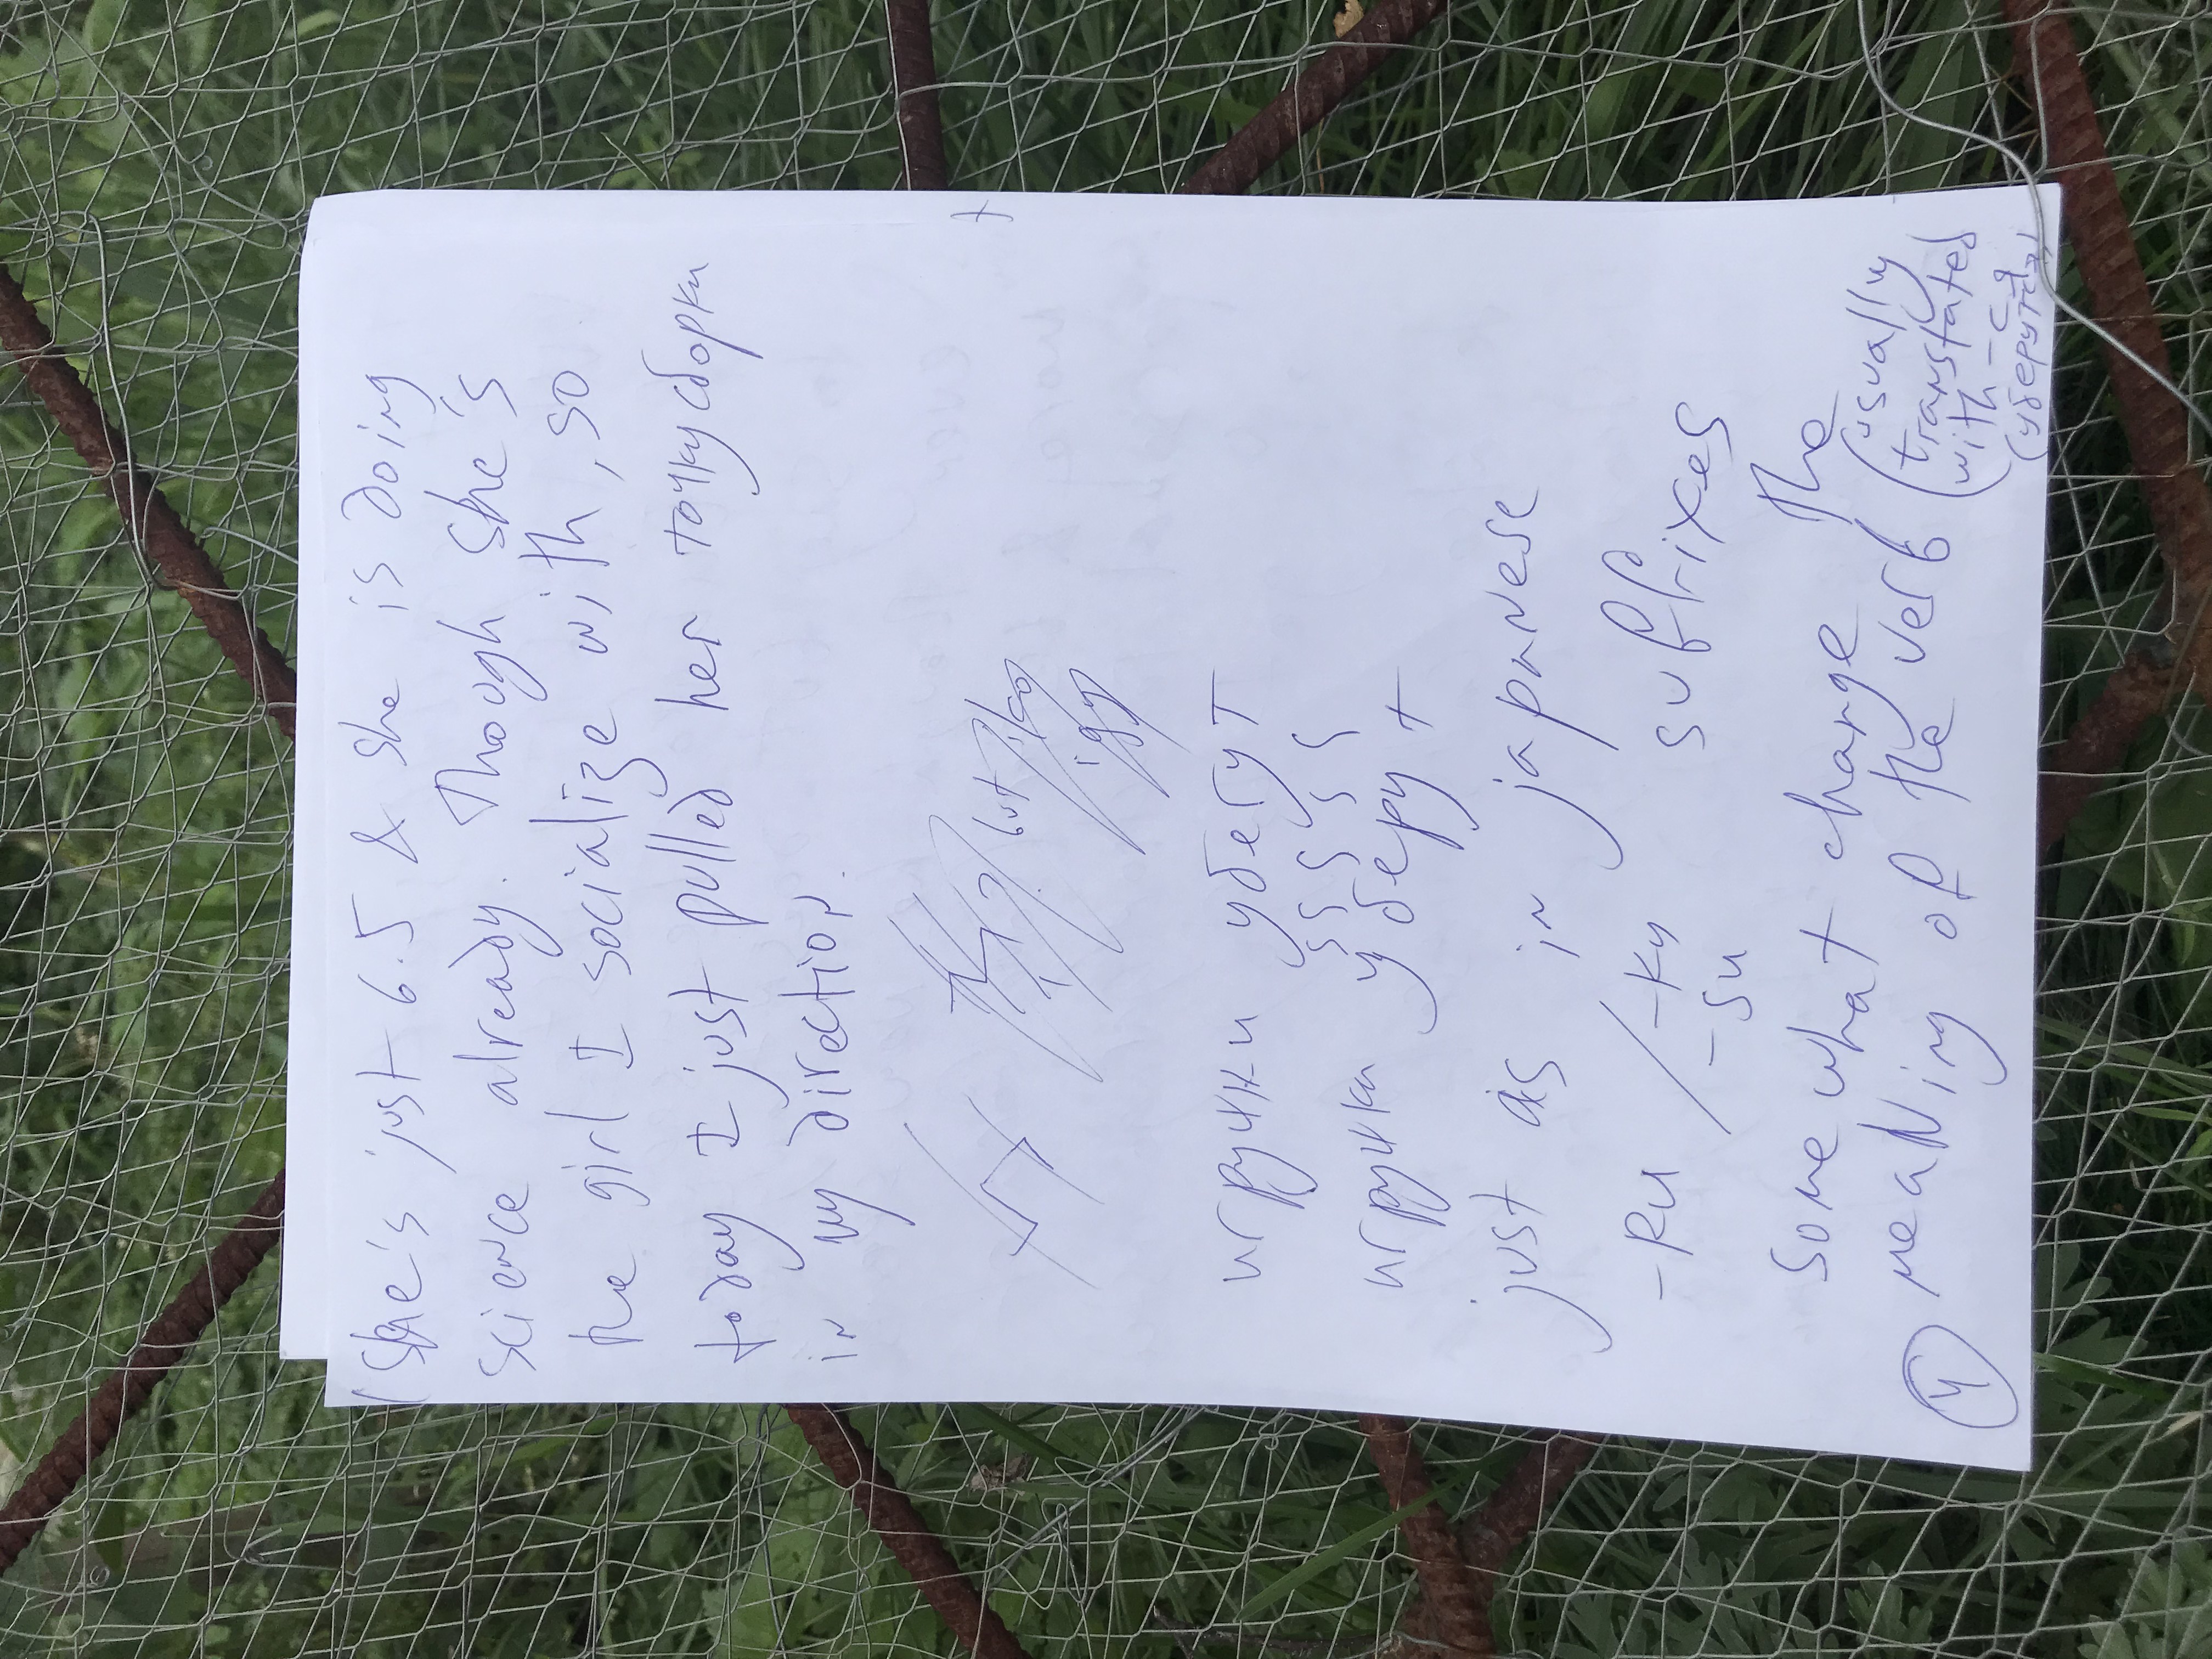 (She's just 6.5 & she is doing
science already. Though she's
the girl I socialize with, so
today I just pulled her точку сборки
in my direction.
but
игрушки убегут
игрушки уберут
just as in japanese
-ru / -ku
-su suffixes
somewhat change the
meaning of the verb (usually
translated
with -ся
(уберутся)
4